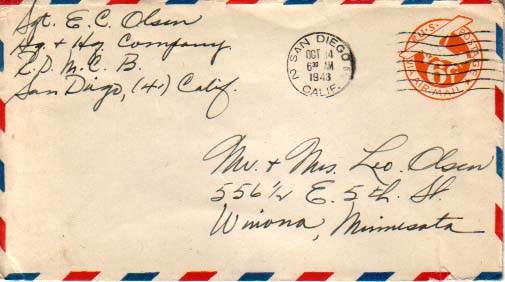 Sgt. E. C. Olsen
Hq. & Hq. Company
R.D. M.C.B.
San Diego, (41) Calif.
SAN DIEGO
OCT 14
6 30 AM
1943
2
CALIF.
U.S. POSTAGE
6¢
VIA AIR MAIL
Mr. & Mrs. Leo. Olsen
556 1/2 E. 5th. St.
Winona, Minnesota